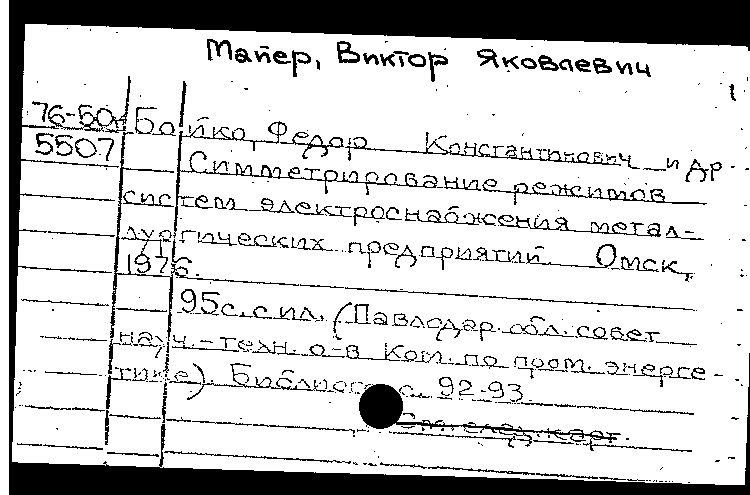 Майер, Виктор Яковлевич
1
76-50
5507
Бойко, Федор Константинович и др.
Симметрирование режимов
систем электроснабжения метал-
лургических предприятий. Омск,
1976.
95 с. с ил. (Павлодар. обл. совет
науч.-техн. о-в Ком. по пром. энерге-
тике). Библиогр. с. 92-93.
См. след. карт.